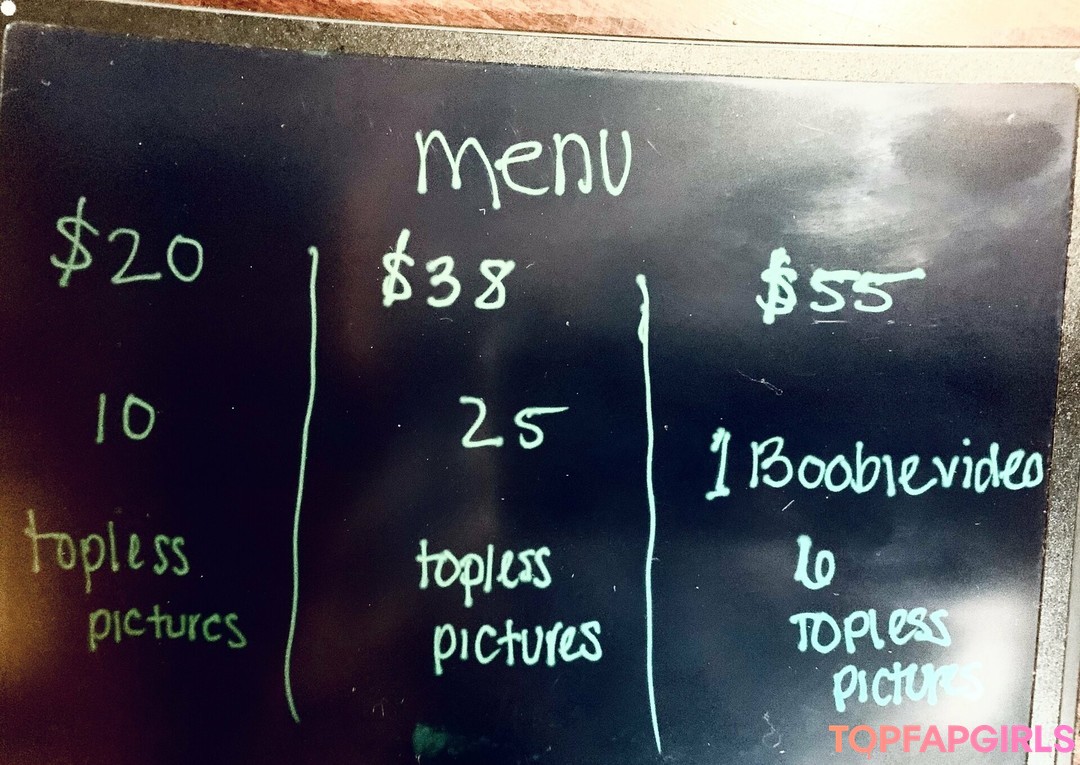 menu
$20
10
topless
pictures
$38
25
topless
pictures
$55
1 Boobie video
6
TOPLESS
pictures
TOPFAPGIRLS